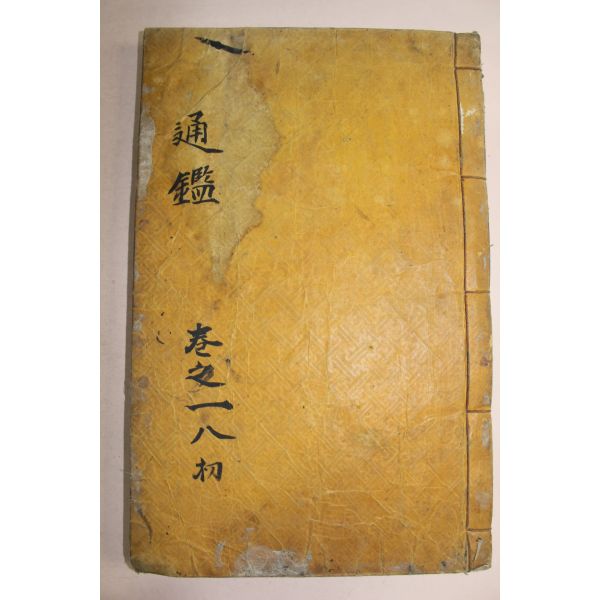 通鑑
卷之一八初